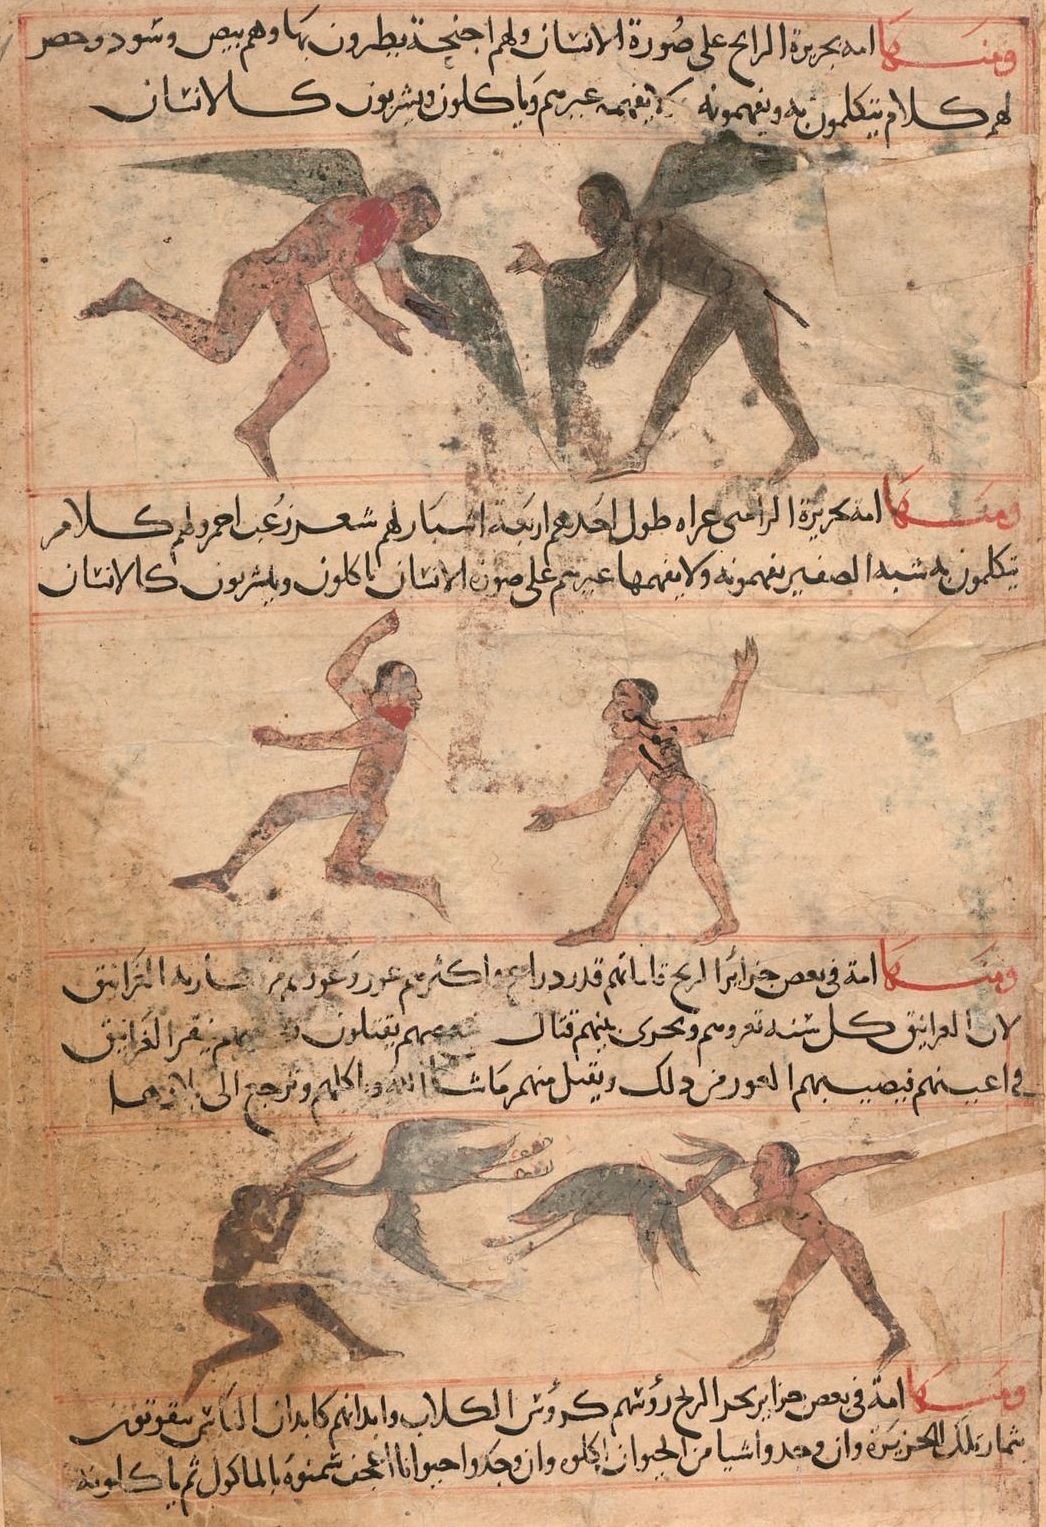 ومنها امة بجزيرة الرامح على صورة الانسان ولهم اجنحة يطيرون بها وهم بيض وسود وخضر
لهم كلام يتكلمون به ويفهمونه لا يفهمه غيرهم وياكلون ويشربون كالانسان
ومنها امة بجزيرة الرامى عراه طول احدهم اربعة اشبار لهم شعر زغب احمر ولهم كلام
يتكلمون به شبه الصفير يفهمونه ولا يفهمها غيرهم على صورة الانسان ياكلون ويشربون كالانسان
ومنها امة فى بعض جزائر الزنج قاماتهم قدر دراع واكثرهم عور وعورهم من الغرانيق
لان الغرانيق كل سنه تغزوهم ويجرى بينهم قتال يقتلون فينقر الغرانيق
فى اعينهم فيصيبهم العور من دلك ويقتل منهم ما شا الله وتاكلهم وترجع الى بلادها
ومنها امة فى بعض جزاير بحر الزنج رؤسهم كرؤس الكلاب وابدانهم كابدان الناس يتقوتون
بثمار تلك الجزيرة وان وجدوا شيا من الحيوان اكلوه وان وجدوا حيوانا اعجف سمنوه بالماكول ثم ياكلونه